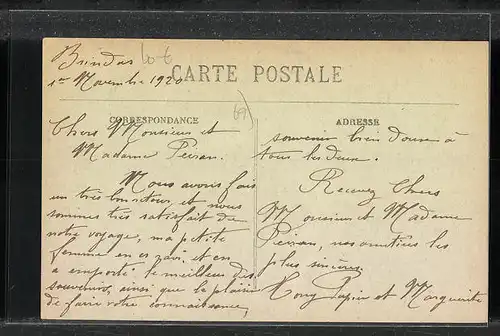 Brindas
1er Novembre 1920
CARTE POSTALE
CORRESPONDANCE
ADRESSE
Chers Monsieur et
Madame Peiran.
Nous avons fais
un très bon retour, et nous
sommes très satisfait de
notre voyage, ma petite
femme en es ravi, et en
a emporté le meilleur des
souvenirs, ainsi que le plaisir
de faire votre connaissance,
souvenir bien doux à
tous les deux.
Recevez Chers
Monsieur et Madame
Peiran, nos amitiées les
plus sincères.
Tony Papin et Marguerite
69